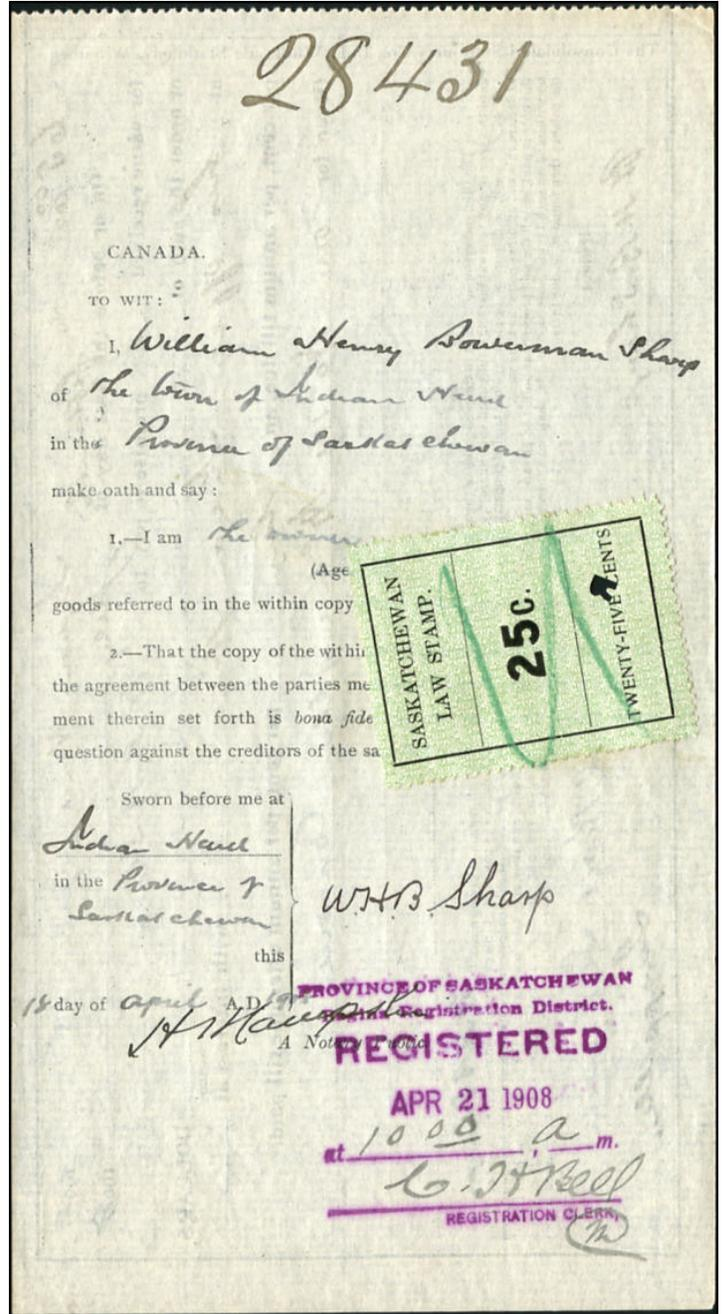 28431
CANADA.
TO WIT:
I, William Henry Bowerman Sharp
of the town of Indian Head
in the Province of Saskatchewan
make oath and say :
1.—I am the owner
(Age
goods referred to in the within copy
2.—That the copy of the within
the agreement between the parties me
ment therein set forth is bona fide
question against the creditors of the sa
SASKATCHEWAN
LAW STAMP.
25c.
TWENTY-FIVE CENTS
Sworn before me at
Indian Head
in the Province of
Saskatchewan
this
18 day of April A.D. 190
W.H.B. Sharp
A Notary Public
PROVINCE OF SASKATCHEWAN
Regina Registration District.
REGISTERED
APR 21 1908
at 10 00, a m.
C. H Bell
REGISTRATION CLERK,